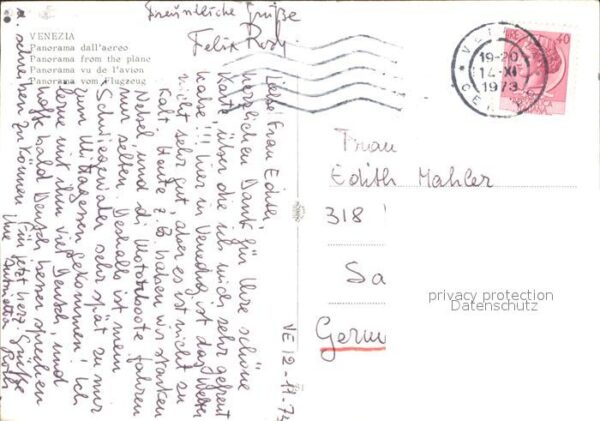 VENEZIA
Panorama dall'aereo
Panorama from the plane
Panorama vu de l'avion
Panorama vom Flugzeug
Freundliche Grüße
Felix
VE 12-11-73
Liebe Frau Edith,
herzlichen Dank für Ihre schöne
Karte über die ich mich sehr gefreut
habe!!! Hier in Venedig ist das Wetter
nicht sehr gut, aber es ist nicht zu
Kalt. Heute z.B. haben wir starken
Nebel, und di Motorboote fahren
nur selten. Deshalb ist mein
Schwiegervater sehr spät zu mir
zum Mittagessen gekommen. Ich
lerne mit ihm viel Deutsch, und
hoffe bald Deutsch besser sprechen
u. schreiben zu können. Für jetzt herz. Grüße
Ihre
19-20
14·XI
1973
40
Frau
Edith Mahler
318
Sa
Germ
privacy protection
Datenschutz